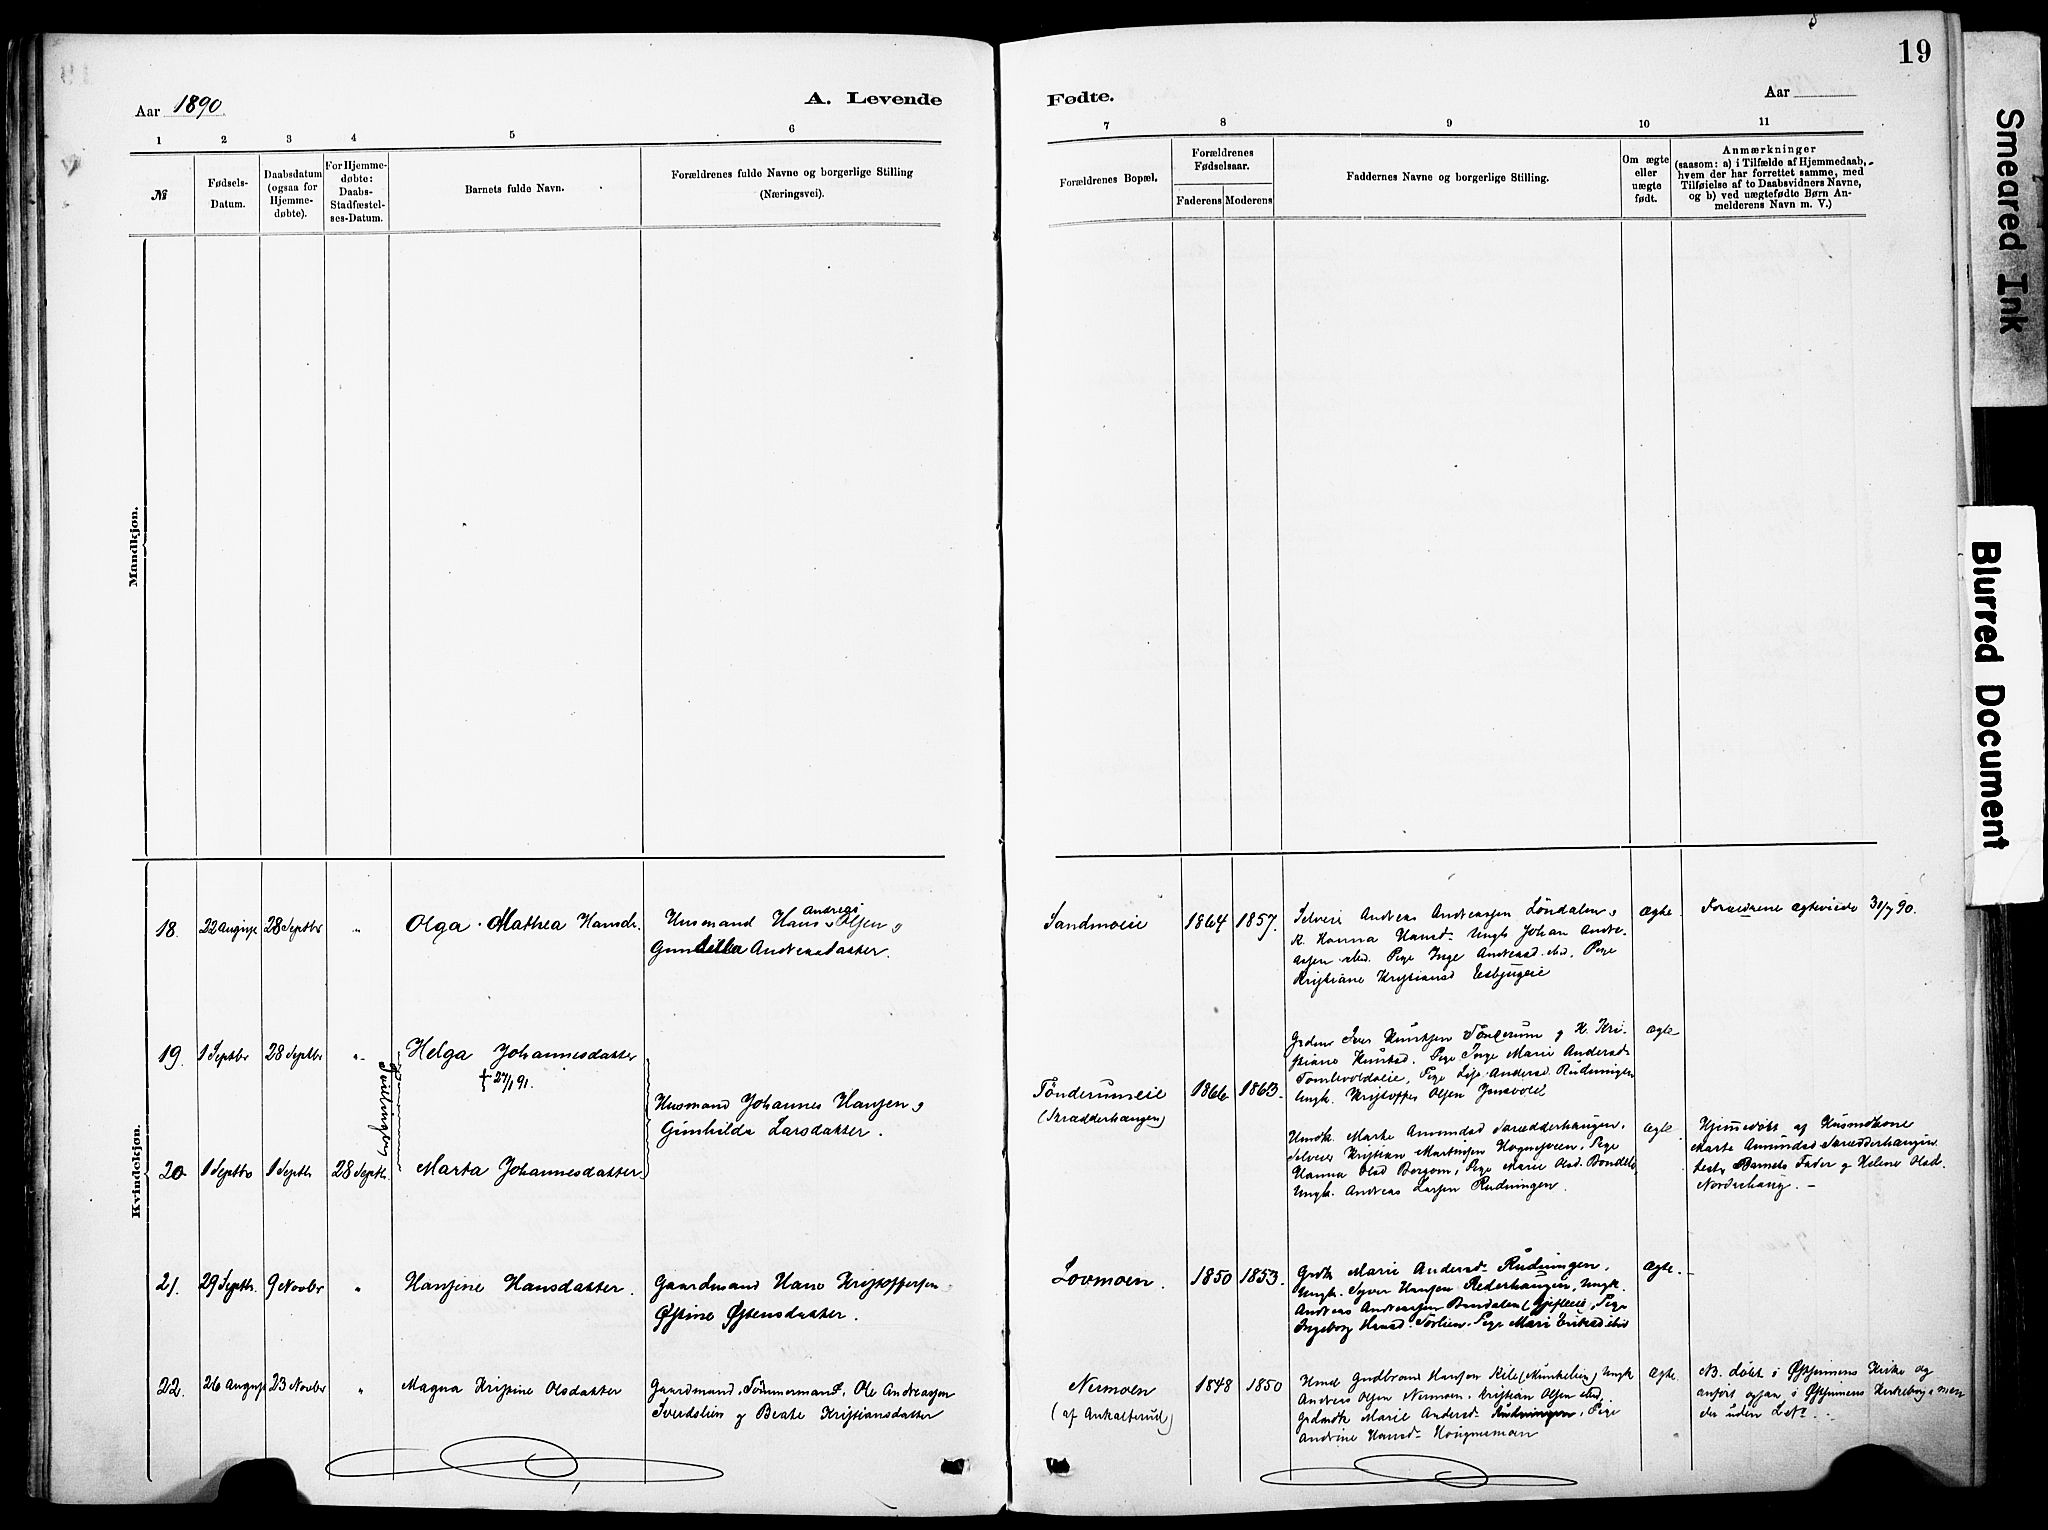 19
Aar 1890.
A. Levende
Fødte.
Aar
1 2 3 4 5 6
7 8 9 10 11
№
Fødsels-
Datum.
Daabsdatum
(ogsaa for
Hjemme-
døbte).
For Hjemme-
døbte:
Daabs-
Stadfæstel-
ses-Datum.
Barnets fulde Navn.
Forældrenes fulde Navne og borgerlige Stilling
(Næringsvei).
Forældrenes Bopæl.
Forældrenes
Fødselsaar.
Faderens Moderens
Faddernes Navne og borgerlige Stilling.
Om ægte
eller
uægte
født.
Anmærkninger
(saasom: a) i Tilfælde af Hjemmedaab,
hvem der har forrettet samme, med
Tilføielse af to Daabsvidners Navne,
og b) ved uægtefødte Børn An-
melderens Navn m. V.)
Mandkjøn.
Kvindekjøn.
18. 22 August 28 Septbr " Olga Mathea Hansdr.
Husmand Hans Andreas Olsen og
Gunhilda Andreasdatter.
Sandmoeie 1864 1857.
Selveier Andreas Andreassen Löndalen,
K. Hanna Hansd. Ungk. Johan Andre-
assen ibd. Pige Inge Andreasd. ibd. Pige
Kristiane Kristiansd
ægte.
Forældrene ægteviede 31/7 90.
19. 1 Septbr 28 Septbr " Helga Johannesdatter
† 27/1 91.
Tvillinger
Husmand Johannes Hansen og
Gunhilda Larsdatter.
Tönderumeie
(Skrædderhaugen)
1866 1863.
Iver Knutsen Tönderum og K. Kri-
stiane Knutsd. Pige Inge Marie Andersd.
Tomlevoldseie, Pige Lise Andersd. Rudningen
Ungk. Kristoffer Olsen
ægte
20 1 Septbr 1 Septbr 28 Septbr. Marta Johannesdatter
Marte Amundsd Skrædderhaugen,
Selveier Kristian Martinsen Pige
Hanna Olsd Pige Marie Olsd.
Ungk. Andreas Larsen Rudningen.
ægte.
Hjemmedøbt af Husmdkone
Marte Amundsd Skrædderhaugen
Barnets Fader og Helene Olsd.
Nordrehaug. -
21. 29 Septbr. 9 Novbr " Hansine Hansdatter.
Gaardmand Hans Kristoffersen
Østine Østensdatter.
Lovmoen. 1850 1853.
Marie Andersd. Rudningen,
Ungk. Syver Hansen Ungk.
Andreas Andreassen Pige
Ingeborg Hansd. Pige Mari Eriksd ibd
ægte. -
22. 26 August 23 Novbr " Magna Kristine Olsdatter
Gaardmand, Tömmermand, Ole Andreassen
Sverdslien og Beate Kristiansdatter
Nermoen
(af Ankalterud)
1848 1850
Gudbrand Hansen Ungk
Andreas Olsen Nermoen, Kristian Olsen ibd,
Marie Andersd. Rudningen, Pige
Andrine Hansd.
ægte.
NB. døbt i Østsinnens Kirke og
anført ogsaa i Østsinnens Kirkebog men
der uden №
Smeared Ink
Bare
Blurred Document